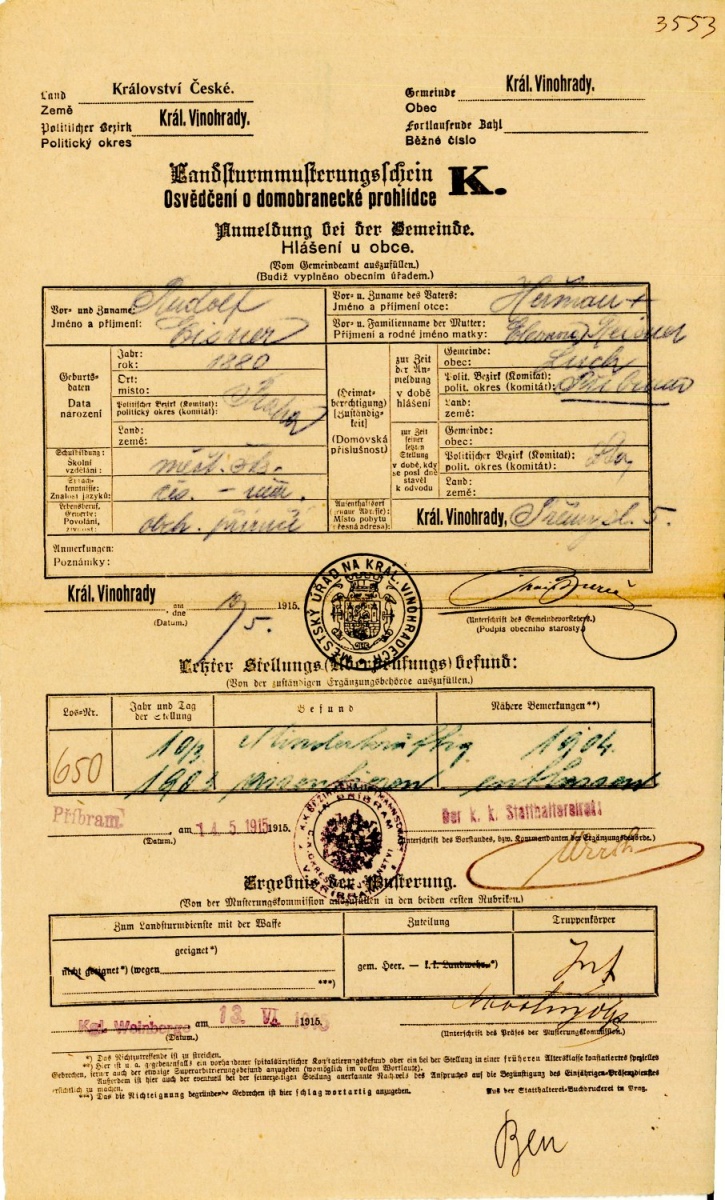 3553
Land Království České.
Země
Politischer Bezirk Král. Vinohrady.
Politický okres
Gemeinde Král. Vinohrady.
Obec
Fortlaufende Zahl
Běžné číslo
Landsturmmusterungsschein K.
Osvědčení o domobranecké prohlídce
Anmeldung bei der Gemeinde.
Hlášení u obce.
(Vom Gemeindeamt auszufüllen.)
(Budiž vyplněno obecním úřadem.)
Vor- und Zuname: Rudolf
Jméno a příjmení: Eisner
Vor- u. Zuname des Vaters: Heřman +
Jméno a příjmení otce:
Vor- u. Familienname der Mutter: Eleonora
Příjmení a rodné jméno matky:
Geburtsdaten
Data narození
Jahr:
rok: 1880
Ort:
místo: Praha
Politischer Bezirk (Komitat):
politický okres (komitát):
Land:
země:
(Heimatberechtigung) [Zuständigkeit]
(Domovská příslušnost)
zur Zeit der Anmeldung
v době hlášení
Gemeinde:
obec:
Polit. Bezirk (Komitat):
polit. okres (komitát):
Land:
země:
zur Zeit seiner letzten Stellung
v době, kdy se posl. dostavěl k odvodu
Gemeinde:
obec:
Politischer Bezirk (Komitat):
polit. okres (komitát):
Land:
země:
Schulbildung:
Školní vzdělání: měst. šk.
Sprachkenntnisse:
Znalost jazyků: čes. - něm.
Lebensberuf, Gewerbe:
Povolání, obch.
Aufenthaltsort (genaue Adresse):
Místo pobytu (přesná adresa): Král. Vinohrady, 5.
Anmerkungen:
Poznámky:
Král. Vinohrady am dne 10/5. 1915.
(Datum.)
MĚSTSKÝ ÚŘAD NA KRÁL. VINOHRADECH
(Unterschrift des Gemeindevorstehers.)
(Podpis obecního starosty.)
Letzter Stellungs(Überprüfungs)befund:
(Von der zuständigen Ergänzungsbehörde auszufüllen.)
Los-Nr. Jahr und Tag der Stellung Befund Nähere Bemerkungen**)
650 10/3 Minderkräftig 1904
waffenunfähig entlassen
Příbram am 14. 5. 1915 1915.
(Datum.)
Der k. k. Statthaltereirat:
(Unterschrift des Vorstandes, bzw. Kommandanten der Ergänzungsbehörde.)
Ergebnis der Musterung.
(Von der Musterungskommission auszufüllen in den beiden ersten Rubriken.)
Zum Landsturmdienste mit der Waffe Zuteilung Truppenkörper
geeignet*)
nicht geeignet*) (wegen
***)
gem. Heer. — k.k. Landwehr.*)
Inf
Kgl. Weinberge am 13. VI. 1915 1915.
(Datum.)
(Unterschrift des Präses der Musterungskommission.)
*) Das Nichtzutreffende ist zu streichen.
**) Hier ist u. a. gegebenenfalls ein vorhandener spitalsärztlicher Konstatierungsbefund oder ein bei der Stellung in einer früheren Altersklasse konstatiertes spezielles
Gebrechen, ferner auch der etwaige Superarbitrierungsbefund anzugeben (womöglich im vollen Wortlaute).
Außerdem ist hier auch der eventuell bei der seinerzeitigen Stellung anerkannte Nachweis des Anspruches auf die Begünstigung des Einjährigen-Präsenzdienstes
ersichtlich zu machen.
***) Das die Nichteignung begründende Gebrechen ist hier schlagwortartig anzugeben.
Aus der Statthalterei-Buchdruckerei in Prag.
Ben